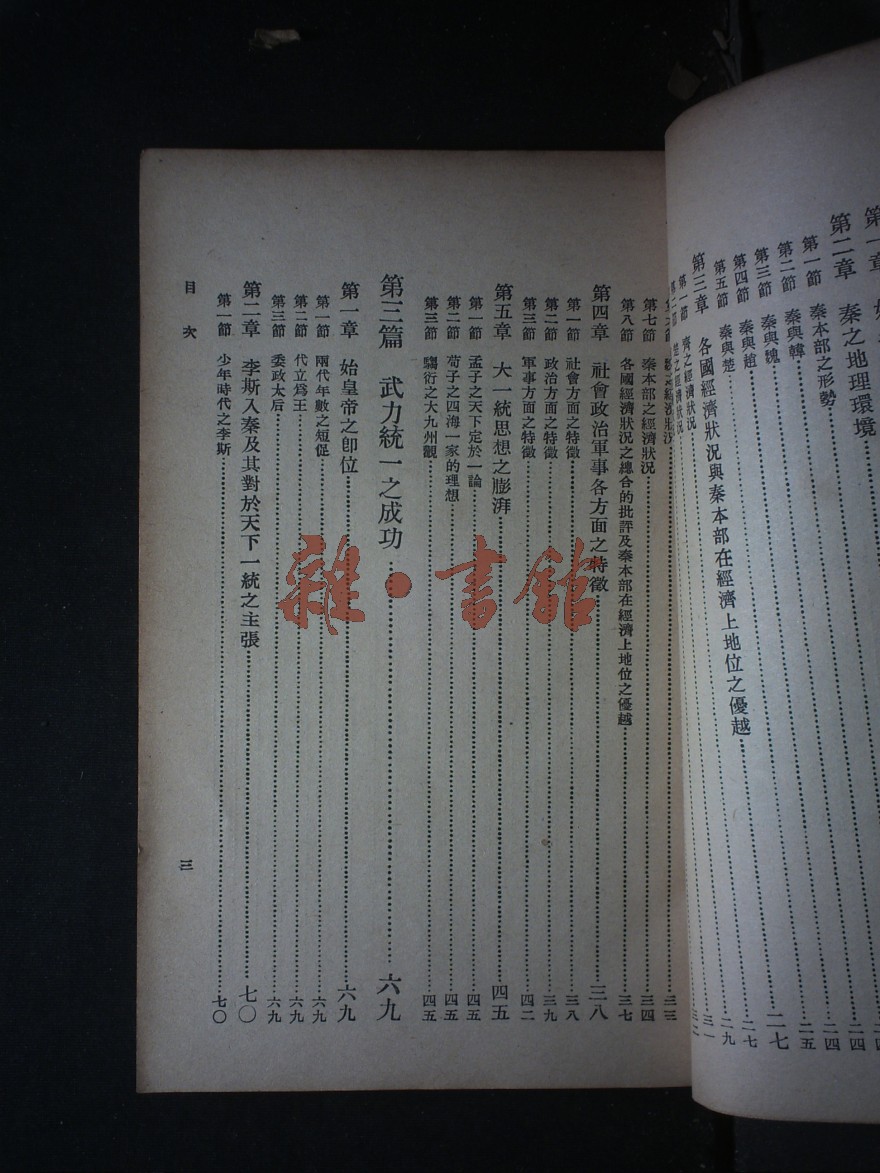 第一章
第二章 秦之地理環境
第一節 秦本部之形勢
第二節 秦與韓
第三節 秦與魏……二四
第四節 秦與趙……二四
第五節 秦與楚……二五
第三章 各國經濟狀況與秦本部在經濟上地位之優越……二七
第一節 齊之經濟狀況……二七
楚之經濟狀況……二九
三一
三二
經濟狀況……三三
第七節 秦本部之經濟狀況……三四
第八節 各國經濟狀況之總合的批評及秦本部在經濟上地位之優越……三七
第四章 社會政治軍事各方面之特徵……三八
第一節 社會方面之特徵……三八
第二節 政治方面之特徵……三九
第三節 軍事方面之特徵……四二
第五章 大一統思想之膨湃……四五
第一節 孟子之天下定於一論……四五
第二節 荀子之四海一家的理想……四五
第三節 騶衍之大九州觀……四五
第三篇 武力統一之成功……六九
第一章 始皇帝之卽位……六九
第一節 兩代年數之短促……六九
第二節 代立爲王……六九
第三節 委政太后……六九
第二章 李斯入秦及其對於天下一統之主張……七〇
第一節 少年時代之李斯……七〇
目次
三
雜·書館